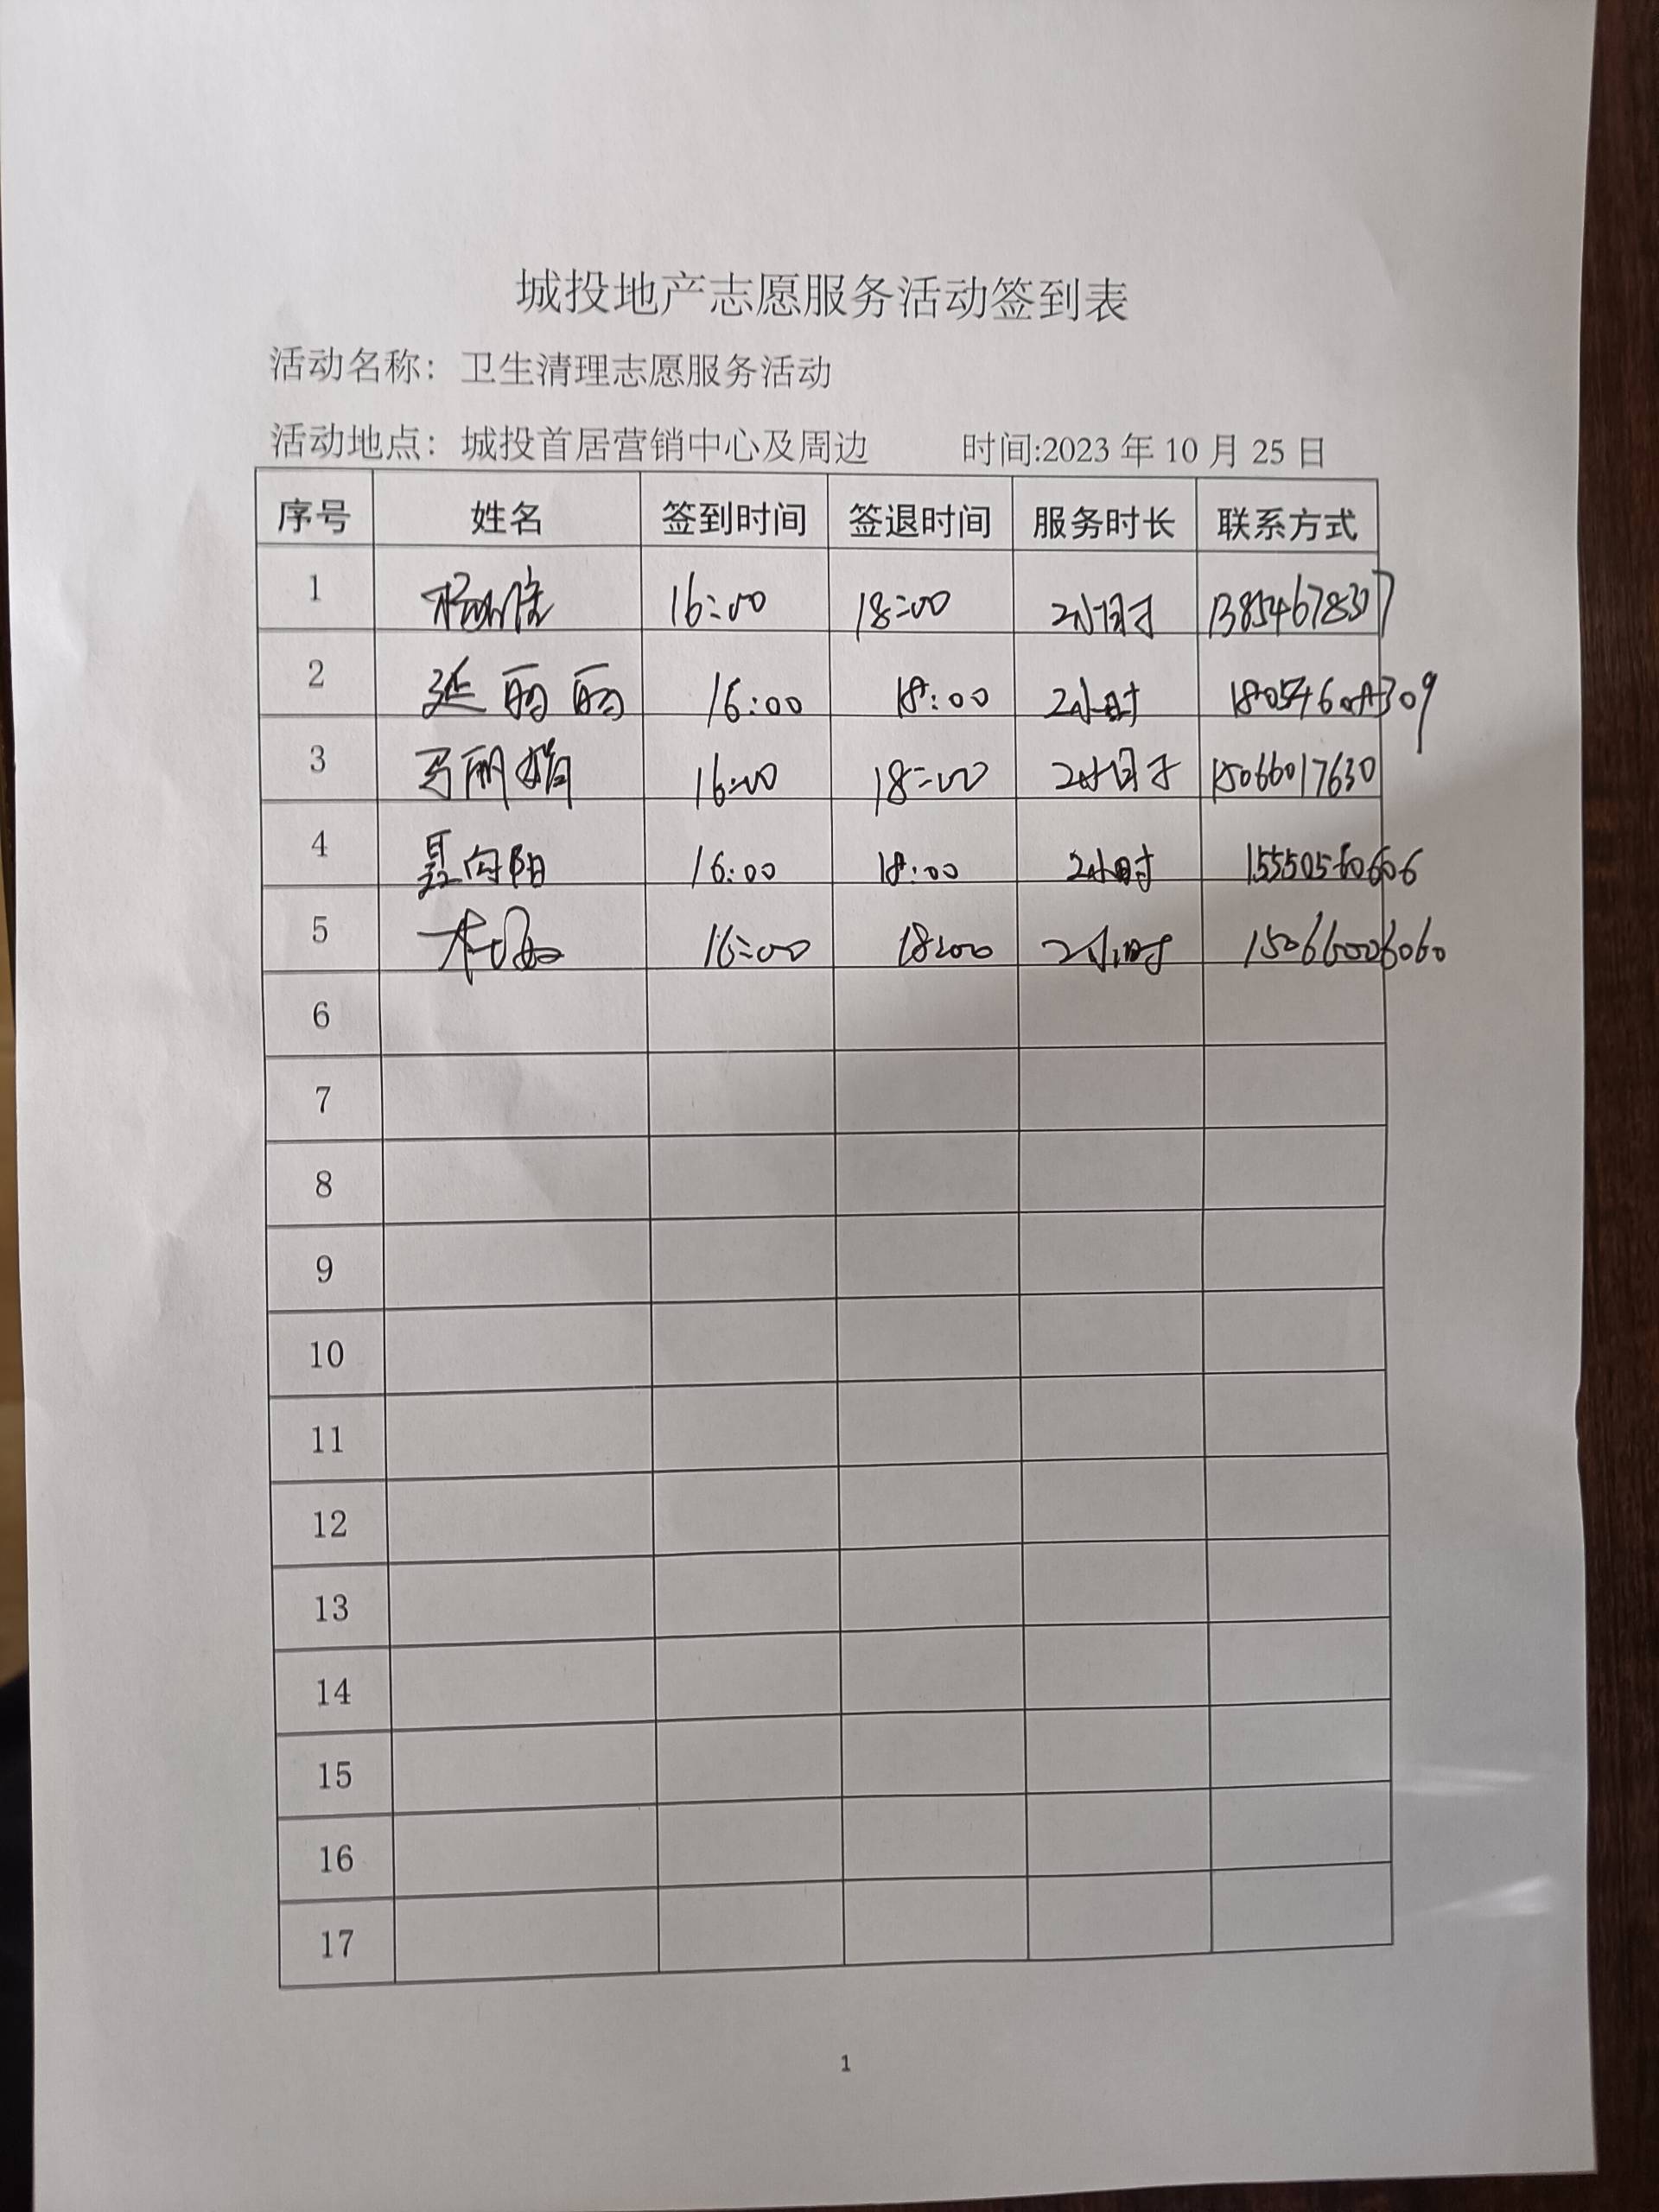 城投地产志愿服务活动签到表
活动名称：卫生清理志愿服务活动
活动地点：城投首居营销中心及周边 时间:2023 年 10 月 25 日
序号 姓名 签到时间 签退时间 服务时长 联系方式
1 16:00 18:00 2小时 13854678307
2 延丽丽 16:00 18:00 2小时
3 马丽娟 16:00 18:00 2小时 15066017630
4 聂向阳 16:00 18:00 2小时 15550560606
5 16:00 18:00 2小时 15066006060
6
7
8
9
10
11
12
13
14
15
16
17
1